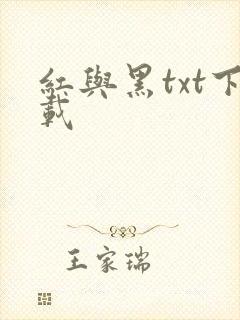 紅與黑txt下
載
王家瑞